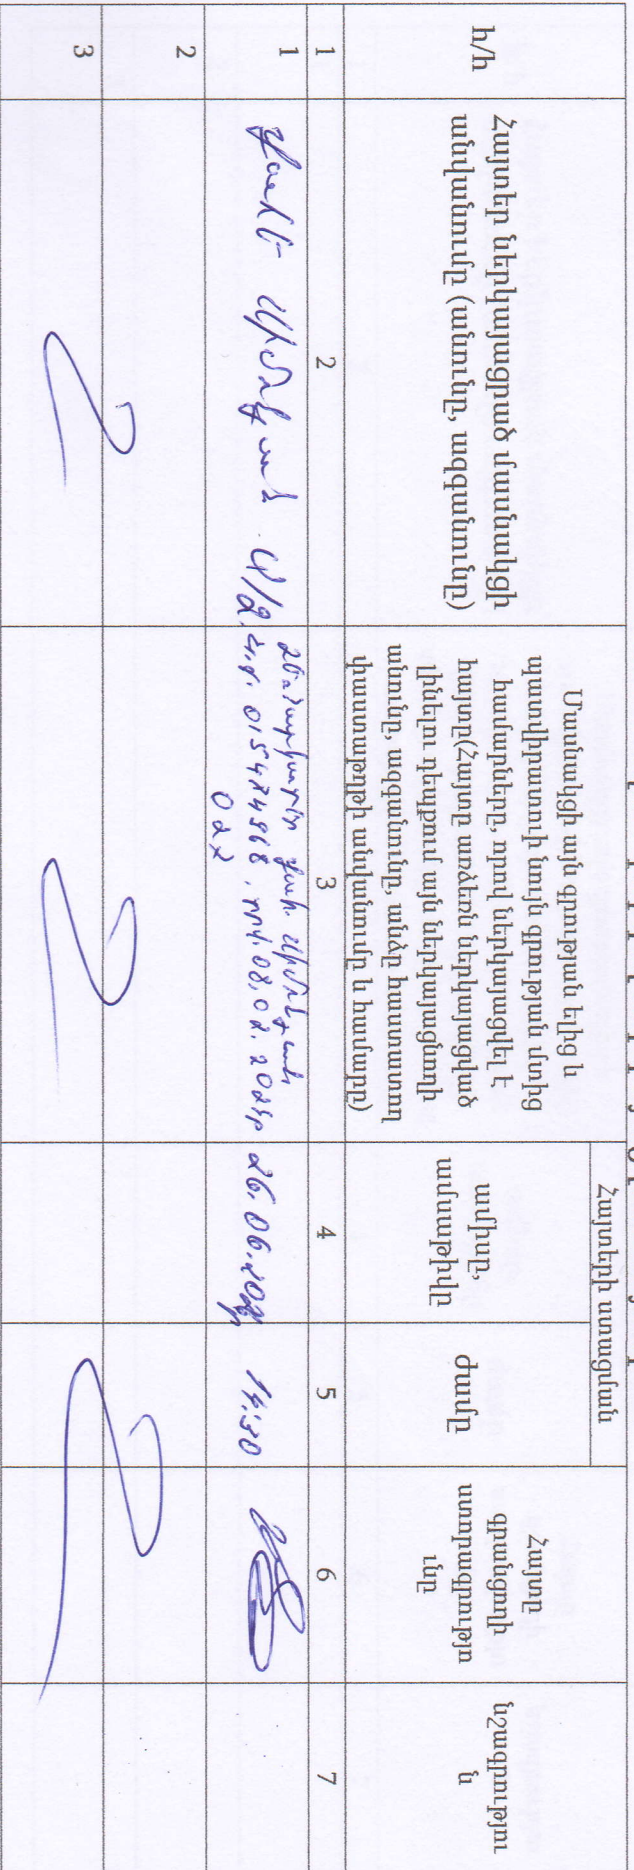 հ/հ
Հայտեր ներկայացրած մասնակցի
անվանումը (անունը, ազգանունը)
Մասնակցի այն գրության ելից և
պատվիրատուի նույն գրության մտից
համարները, որով ներկայացվել է
հայտը(Հայտը առձեռն ներկայացված
լինելու դեպքում այն ներկայացնողի
անունը, ազգանունը, անձը հաստատող
փաստաթղթի անվանումը և համարը)
Հայտերի ստացման
ամիսը,
ամսաթիվը
ժամը
Հայտը
գրանցողի
ստորագրությու
նը
Նշագրությու
ն
1
2
3
4
5
6
7
1
Ա/Ձ
26.06.
14:30
2
3